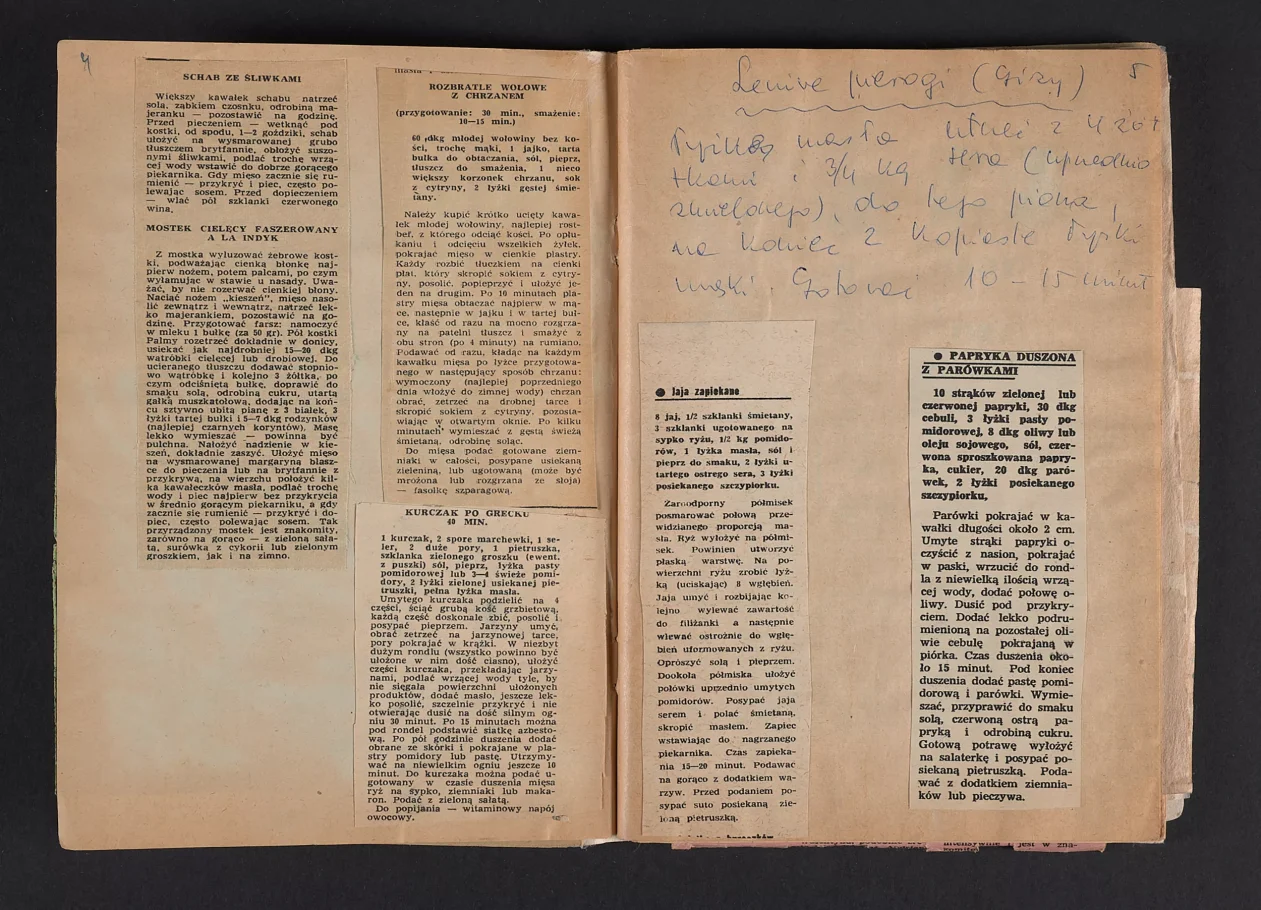 4
SCHAB ZE ŚLIWKAMI
Większy kawałek schabu natrzeć
solą, ząbkiem czosnku, odrobiną ma-
jeranku — pozostawić na godzinę.
Przed pieczeniem — wetknąć pod
kostki, od spodu, 1—2 goździki, schab
ułożyć na wysmarowanej grubo
tłuszczem brytfannie, obłożyć suszo-
nymi śliwkami, podlać trochę wrzą-
cej wody wstawić do dobrze gorącego
piekarnika. Gdy mięso zacznie się ru-
mienić — przykryć i piec, często po-
lewając sosem. Przed dopieczeniem
— wlać pół szklanki czerwonego
wina.
MOSTEK CIELĘCY FASZEROWANY
A LA INDYK
Z mostka wyluzować żebrowe kost-
ki, podważając cienką błonkę naj-
pierw nożem, potem palcami, po czym
wyłamując w stawie u nasady. Uwa-
żać, by nie rozerwać cienkiej błony.
Naciąć nożem „kieszeń", mięso naso-
lić zewnątrz i wewnątrz, natrzeć lek-
ko majerankiem, pozostawić na go-
dzinę. Przygotować farsz: namoczyć
w mleku 1 bułkę (za 50 gr). Pół kostki
Palmy rozetrzeć dokładnie w donicy,
usiekać jak najdrobniej 15—20 dkg
wątróbki cielęcej lub drobiowej. Do
ucieranego tłuszczu dodawać stopnio-
wo wątróbkę i kolejno 3 żółtka, po
czym odciśniętą bułkę, doprawić do
smaku solą, odrobiną cukru, utartą
gałką muszkatołową, dodając na koń-
cu sztywno ubitą pianę z 3 białek, 3
łyżki tartej bułki i 5—7 dkg rodzynków
(najlepiej czarnych koryntów). Masę
lekko wymieszać — powinna być
pulchna. Nałożyć nadzienie w kie-
szeń, dokładnie zaszyć. Ułożyć mięso
na wysmarowanej margaryną blasz-
ce do pieczenia lub na brytfannie z
przykrywą, na wierzchu położyć kil-
ka kawałeczków masła, podlać trochę
wody i piec najpierw bez przykrycia
w średnio gorącym piekarniku, a gdy
zacznie się rumienić — przykryć i do-
piec, często polewając sosem. Tak
przyrządzony mostek jest znakomity,
zarówno na gorąco — z zieloną sała-
tą, surówką z cykorii lub zielonym
groszkiem, jak i na zimno.
ROZBRATLE WOŁOWE
Z CHRZANEM
(przygotowanie: 30 min., smażenie:
10—15 min.)
60 dkg młodej wołowiny bez ko-
ści, trochę mąki, 1 jajko, tarta
bułka do obtaczania, sól, pieprz,
tłuszcz do smażenia, 1 nieco
większy korzonek chrzanu, sok
z cytryny, 2 łyżki gęstej śmie-
tany.
Należy kupić krótko ucięty kawa-
łek młodej wołowiny, najlepiej rost-
bef, z którego odciąć kości. Po opłu-
kaniu i odcięciu wszelkich żyłek,
pokrajać mięso w cienkie plastry.
Każdy rozbić tłuczkiem na cienki
płat, który skropić sokiem z cytry-
ny, posolić, popieprzyć i ułożyć je-
den na drugim. Po 10 minutach pla-
stry mięsa obtaczać najpierw w mą-
ce, następnie w jajku i w tartej buł-
ce, kłaść od razu na mocno rozgrza-
ny na patelni tłuszcz i smażyć z
obu stron (po 4 minuty) na rumiano.
Podawać od razu, kładąc na każdym
kawałku mięsa po łyżce przygotowa-
nego w następujący sposób chrzanu:
wymoczony (najlepiej poprzedniego
dnia włożyć do zimnej wody) chrzan
obrać, zetrzeć na drobnej tarce i
skropić sokiem z cytryny, pozosta-
wiając w otwartym oknie. Po kilku
minutach wymieszać z gęstą świeżą
śmietaną, odrobinę soląc.
Do mięsa podać gotowane ziem-
niaki w całości, posypane usiekaną
zieleniną, lub ugotowaną (może być
mrożona lub rozgrzana ze słoja)
— fasolkę szparagową.
KURCZAK PO GRECKU
40 MIN.
1 kurczak, 2 spore marchewki, 1 se-
ler, 2 duże pory, 1 pietruszka,
szklanka zielonego groszku (ewent.
z puszki) sól, pieprz, łyżka pasty
pomidorowej lub 3—4 świeże pomi-
dory, 2 łyżki zielonej usiekanej pie-
truszki, pełna łyżka masła.
Umytego kurczaka podzielić na 4
części, ściąć grubą kość grzbietową,
każdą część doskonale zbić, posolić i
posypać pieprzem. Jarzyny umyć,
obrać zetrzeć na jarzynowej tarce,
pory pokrajać w krążki. W niezbyt
dużym rondlu (wszystko powinno być
ułożone w nim dość ciasno), ułożyć
części kurczaka, przekładając jarzy-
nami, podlać wrzącej wody tyle, by
nie sięgała powierzchni ułożonych
produktów, dodać masło, jeszcze lek-
ko posolić, szczelnie przykryć i nie
otwierając dusić na dość silnym og-
niu 30 minut. Po 15 minutach można
pod rondel podstawić siatkę azbesto-
wą. Po pół godzinie duszenia dodać
obrane ze skórki i pokrajane w pla-
stry pomidory lub pastę. Utrzymy-
wać na niewielkim ogniu jeszcze 10
minut. Do kurczaka można podać u-
gotowany w czasie duszenia mięsa
ryż na sypko, ziemniaki lub maka-
ron. Podać z zieloną sałatą.
Do popijania — witaminowy napój
owocowy.
5
Leniwe pierogi (Gizy)
łyżkę masła utrzeć z 4 żółt
tkami i 3/4 kg sera (uprzednio
zmielonego), do tego piana,
na koniec 2 kopiaste łyżki
mąki. Gotować 10 – 15 minut
● Jaja zapiekane
8 jaj, 1/2 szklanki śmietany,
3 szklanki ugotowanego na
sypko ryżu, 1/2 kg pomido-
rów, 1 łyżka masła, sól i
pieprz do smaku, 2 łyżki u-
tartego ostrego sera, 3 łyżki
posiekanego szczypiorku.
Żaroodporny półmisek
posmarować połową prze-
widzianego proporcją ma-
sła. Ryż wyłożyć na półmi-
sek. Powinien utworzyć
płaską warstwę. Na po-
wierzchni ryżu zrobić łyż-
ką (uciskając) 8 wgłębień.
Jaja umyć i rozbijając ko-
lejno wylewać zawartość
do filiżanki a następnie
wlewać ostrożnie do wgłę-
bień uformowanych z ryżu.
Oprószyć solą i pieprzem.
Dookoła półmiska ułożyć
połówki uprzednio umytych
pomidorów. Posypać jaja
serem i polać śmietaną,
skropić masłem. Zapiec
wstawiając do nagrzanego
piekarnika. Czas zapieka-
nia 15—20 minut. Podawać
na gorąco z dodatkiem wa-
rzyw. Przed podaniem po-
sypać suto posiekaną zie-
loną pietruszką.
● PAPRYKA DUSZONA
Z PARÓWKAMI
10 strąków zielonej lub
czerwonej papryki, 30 dkg
cebuli, 3 łyżki pasty po-
midorowej, 8 dkg oliwy lub
oleju sojowego, sól, czer-
wona sproszkowana papry-
ka, cukier, 20 dkg paró-
wek, 2 łyżki posiekanego
szczypiorku,
Parówki pokrajać w ka-
wałki długości około 2 cm.
Umyte strąki papryki o-
czyścić z nasion, pokrajać
w paski, wrzucić do rond-
la z niewielką ilością wrzą-
cej wody, dodać połowę o-
liwy. Dusić pod przykry-
ciem. Dodać lekko podru-
mienioną na pozostałej oli-
wie cebulę pokrajaną w
piórka. Czas duszenia oko-
ło 15 minut. Pod koniec
duszenia dodać pastę pomi-
dorową i parówki. Wymie-
szać, przyprawić do smaku
solą, czerwoną ostrą pa-
pryką i odrobiną cukru.
Gotową potrawę wyłożyć
na salaterkę i posypać po-
siekaną pietruszką. Poda-
wać z dodatkiem ziemnia-
ków lub pieczywa.
intensywnie i jest w zna-